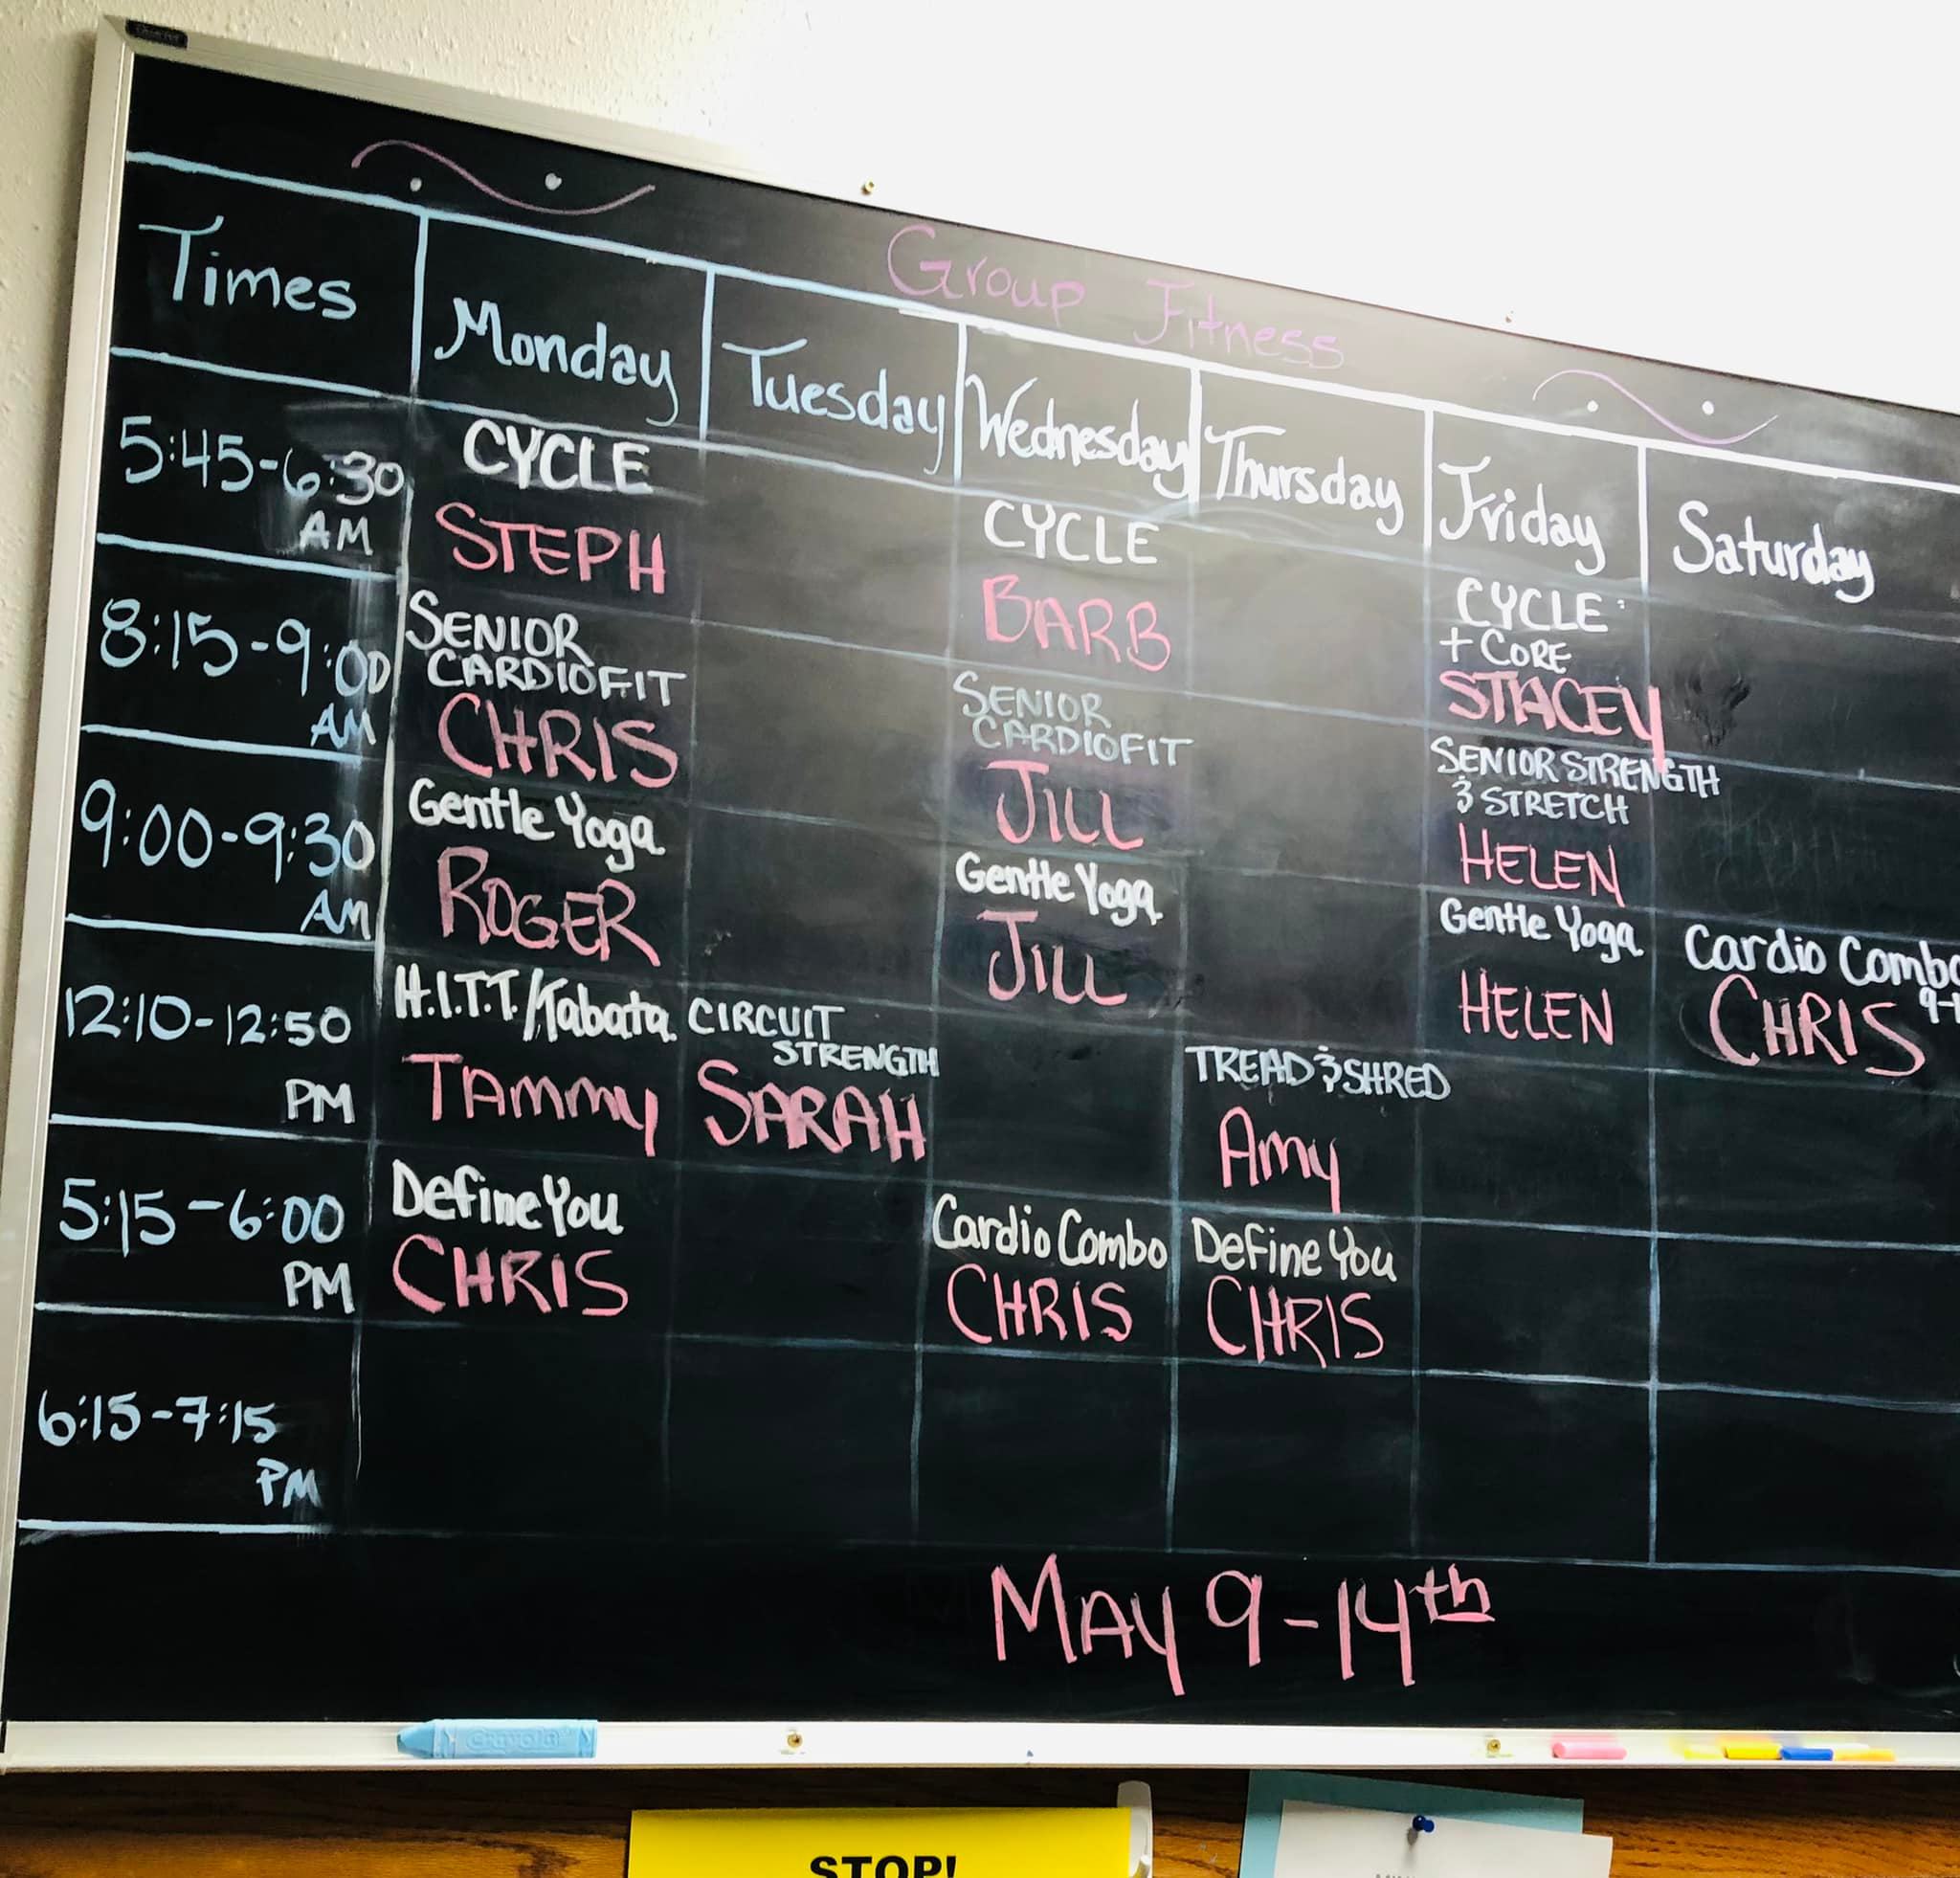 Group Fitness
Times Monday Tuesday Wednesday Thursday Friday Saturday
5:45-6:30
AM
CYCLE
STEPH
CYCLE
BARB
CYCLE
+ CORE
STACEY
8:15-9:00
AM
SENIOR
CARDIOFIT
CHRIS
SENIOR
CARDIOFIT
JILL
SENIOR STRENGTH
& STRETCH
HELEN
9:00-9:30
AM
Gentle Yoga
ROGER
Gentle Yoga
JILL
Gentle Yoga
HELEN
Cardio Combo
CHRIS
12:10-12:50
PM
H.I.T.T./Tabata
TAMMY
CIRCUIT
STRENGTH
SARAH
TREAD & SHRED
Amy
5:15-6:00
PM
Define You
CHRIS
Cardio Combo
CHRIS
Define You
CHRIS
6:15-7:15
PM
MAY 9-14th
Crayola
STOP!